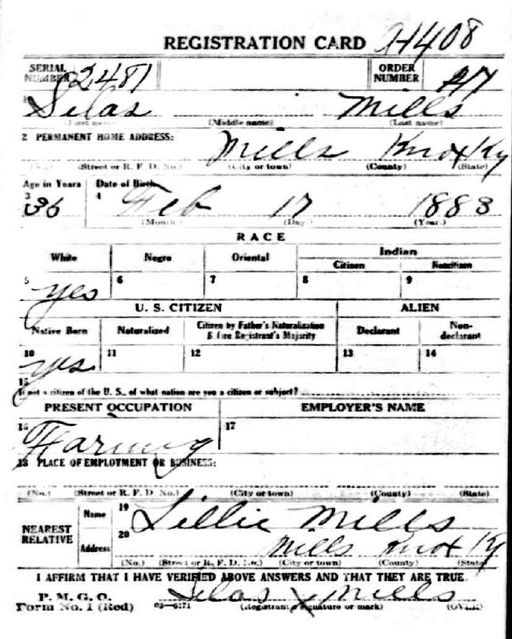 REGISTRATION CARD A1408
SERIAL NUMBER 2481 ORDER NUMBER
1 Silas Mills
(First name) (Middle name) (Last name)
2 PERMANENT HOME ADDRESS: Mills Knox Ky
(No.) (Street or R. F. D. No.) (City or town) (County) (State)
Age in Years Date of Birth
3 36 4 Feb 17 1883
(Month) (Day) (Year)
RACE
White Negro Oriental Indian
Citizen Noncitizen
5 yes 6 7 8 9
U. S. CITIZEN ALIEN
Native Born Naturalized Citizen by Father's Naturalization & fore Registrant's Majority Declarant Non-declarant
10 yes 11 12 13 14
15
If not a citizen of the U. S., of what nation are you a citizen or subject?
PRESENT OCCUPATION EMPLOYER'S NAME
16 Farming 17
18 PLACE OF EMPLOYMENT OR BUSINESS:
(No.) (Street or R. F. D. No.) (City or town) (County) (State)
NEAREST RELATIVE Name 19 Lillie Mills
Address 20 Mills Knox Ky
(No.) (Street or R. F. D. No.) (City or town) (County) (State)
I AFFIRM THAT I HAVE VERIFIED ABOVE ANSWERS AND THAT THEY ARE TRUE.
P. M. G. O.
Form No. 1 (Red) 03-6171 Silas x Mills
(Registrant's signature or mark) (OVER)